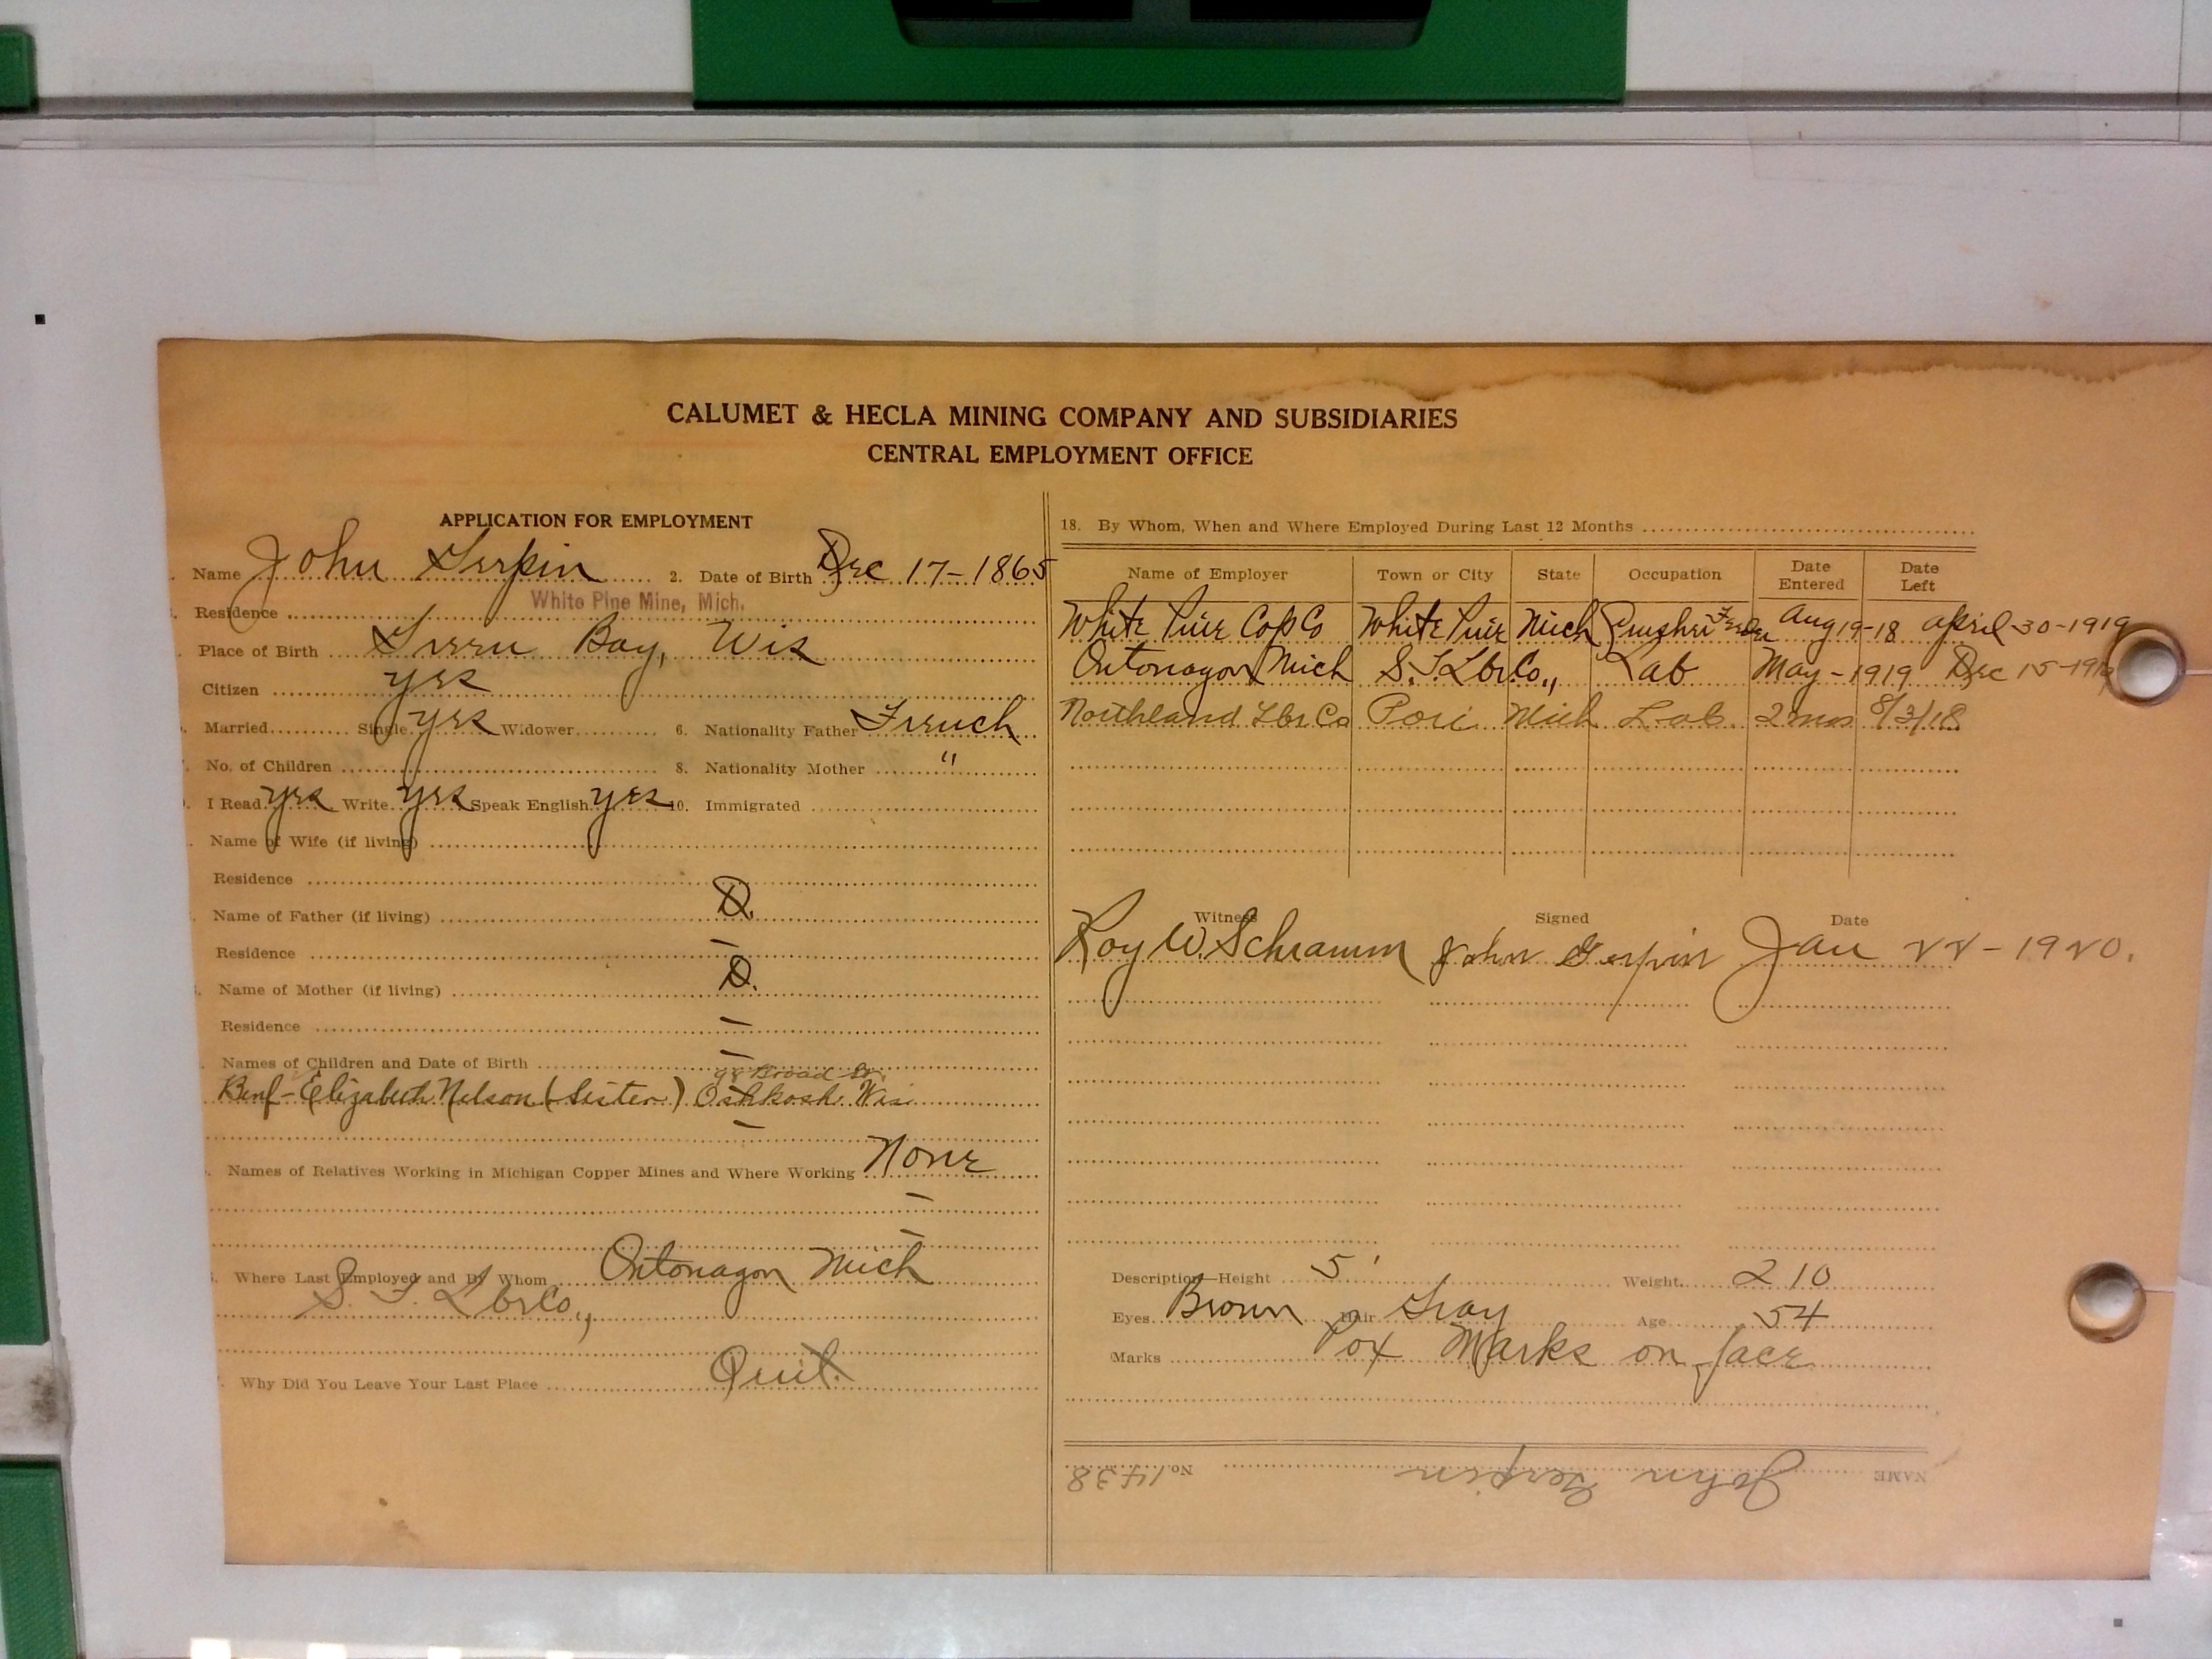 CALUMET & HECLA MINING COMPANY AND SUBSIDIARIES
CENTRAL EMPLOYMENT OFFICE
APPLICATION FOR EMPLOYMENT
Name John Gerpin 2. Date of Birth Dec 17-1865
Residence White Pine Mine, Mich.
Place of Birth Green Bay, Wis
Citizen yes
Married Single yes Widower 6. Nationality Father French
No. of Children 8. Nationality Mother "
I Read yes Write yes Speak English yes 10. Immigrated
Name of Wife (if living)
Residence
Name of Father (if living) D.
Residence –
Name of Mother (if living) D.
Residence –
Names of Children and Date of Birth –
Broad St.
Benf - Elizabeth Nelson (Sister) Oshkosh Wis.
–
Names of Relatives Working in Michigan Copper Mines and Where Working None
–
–
Where Last Employed and By Whom Ontonagon Mich
S. T. Lbr Co.,
Why Did You Leave Your Last Place Quit.
18. By Whom, When and Where Employed During Last 12 Months
Name of Employer Town or City State Occupation Date Entered Date Left
White Pine Cop Co White Pine Mich Crusher Feeder Aug 19-18 April 30-1919
Ontonagon Mich S. T. Lbr. Co., Lab May-1919 Dec 15-1919
Northland Lbr Co Pori Mich Lab 2 mos 8/3/18
Witness Signed Date
Roy W. Schramm John Gerpin Jan 22-1920.
Description—Height 5' Weight 210
Eyes Brown Hair Gray Age 54
Marks Pox Marks on face
NAME John Gerpin No. 1438